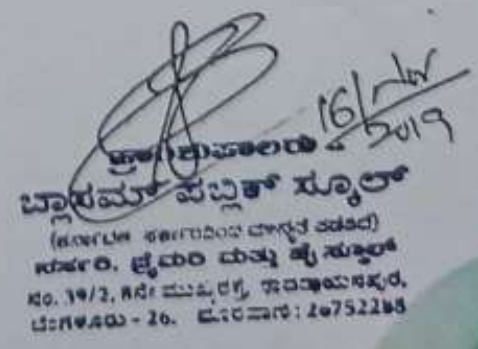 16/ 2019
ಪ್ರಾಂಶುಪಾಲರು
ಬ್ಲಾಸಮ್ ಪಬ್ಲಿಕ್ ಸ್ಕೂಲ್
(ಕರ್ನಾಟಕ ಸರ್ಕಾರದಿಂದ ಮಾನ್ಯತೆ ಪಡೆದಿದೆ)
ನರ್ಸರಿ, ಪ್ರೈಮರಿ ಮತ್ತು ಹೈ ಸ್ಕೂಲ್
ನಂ. 39/2, ಮುಖ್ಯರಸ್ತೆ,
ಬೆಂಗಳೂರು - 26. ದೂರವಾಣಿ: 26752288